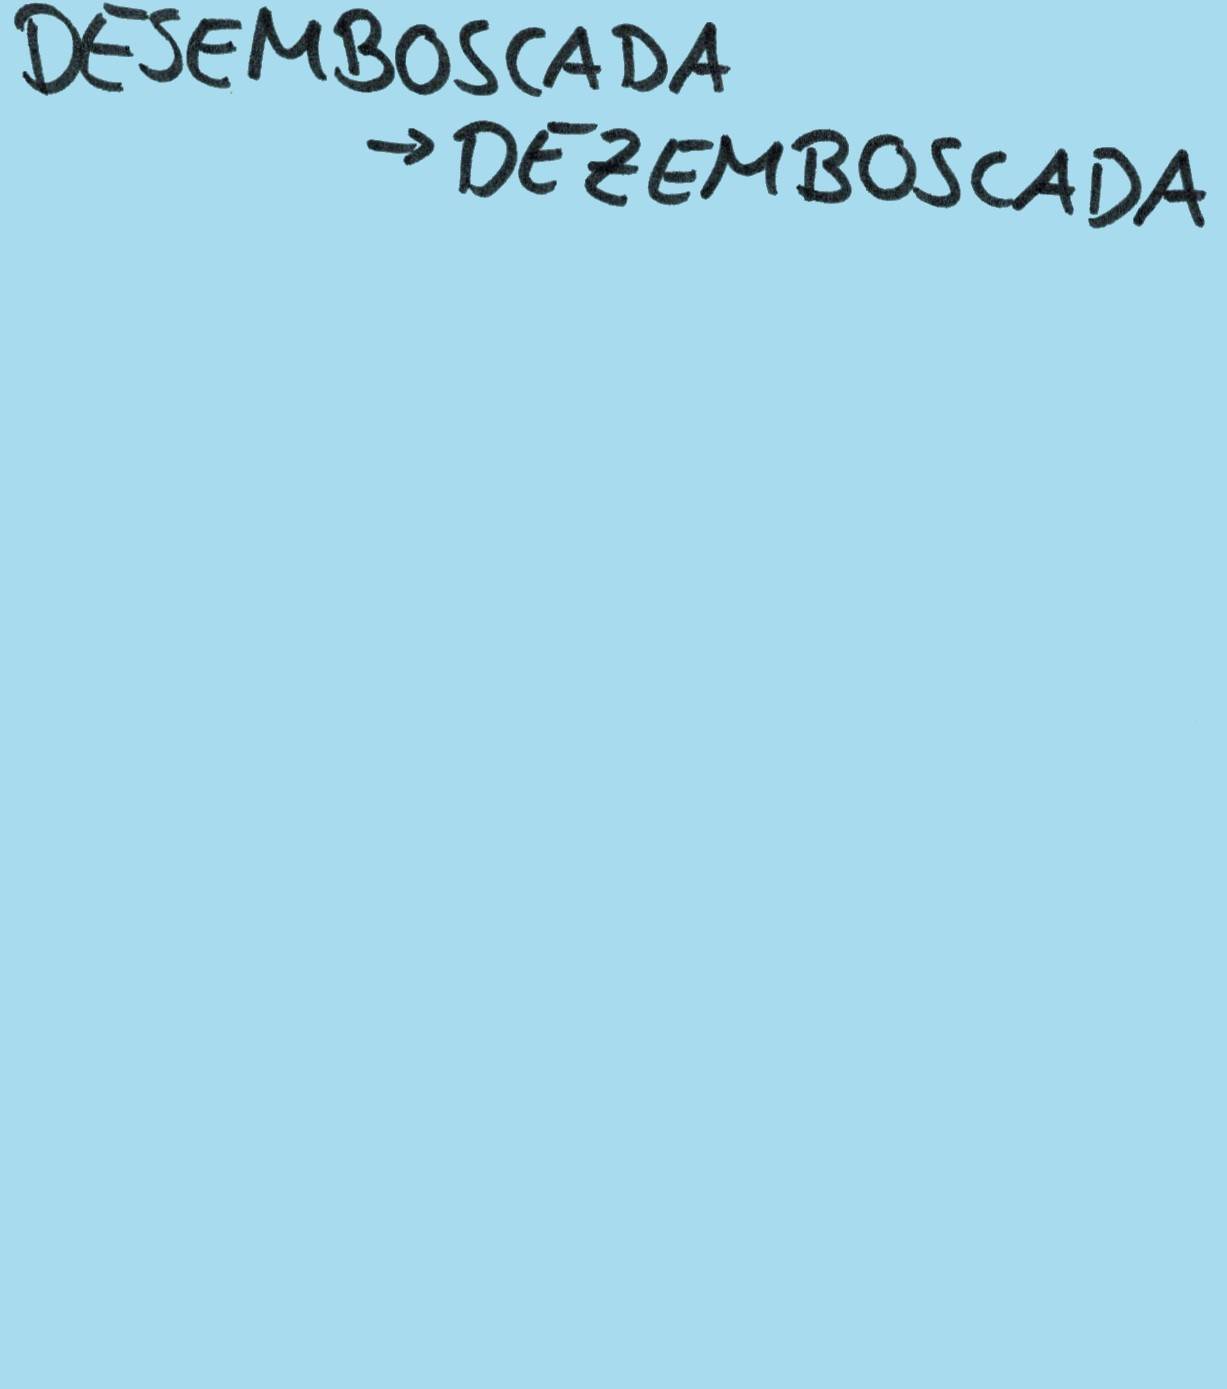 DESEMBOSCADA
→ DEZEMBOSCADA